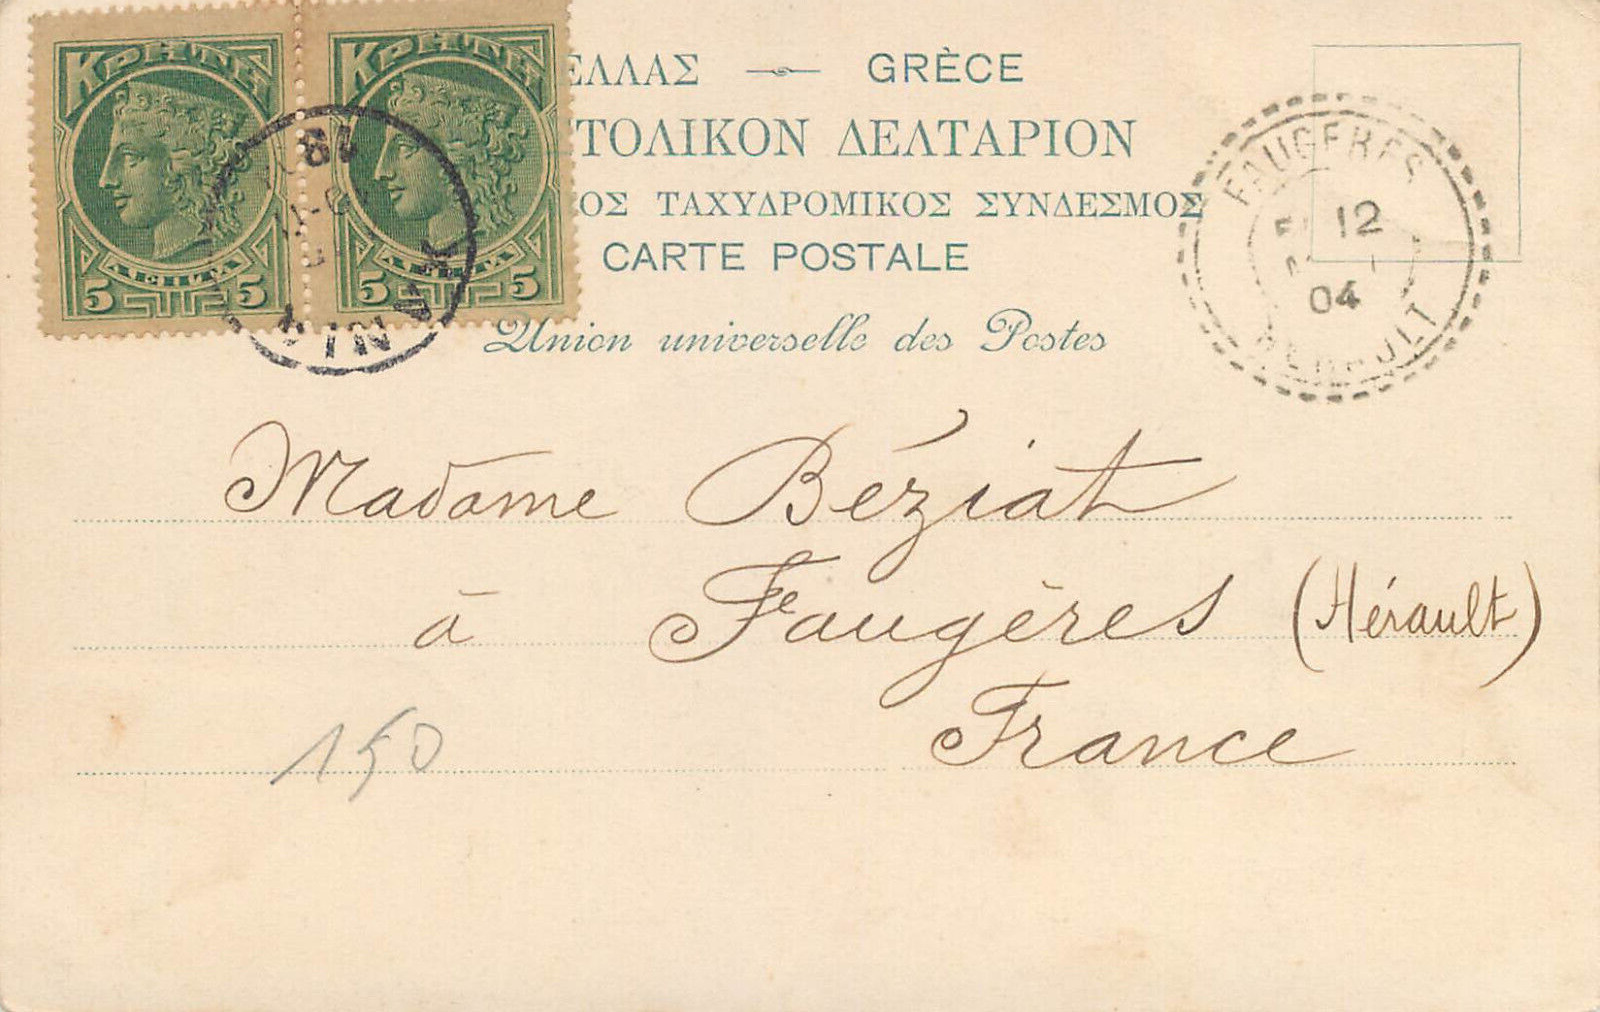 ΚΡΗΤΗ ΚΡΗΤΗ
ΛΕΠΤΑ ΛΕΠΤΑ
5 5 5 5
ΧΑΝΙΑ
ΕΛΛΑΣ — GRÈCE
ΤΟΛΙΚΟΝ ΔΕΛΤΑΡΙΟΝ
ΟΣ ΤΑΧΥΔΡΟΜΙΚΟΣ ΣΥΝΔΕΣΜΟΣ
CARTE POSTALE
Union universelle des Postes
FAUGERES
12
04
HERAULT
Madame Béziat
à Faugères (Hérault)
France
150